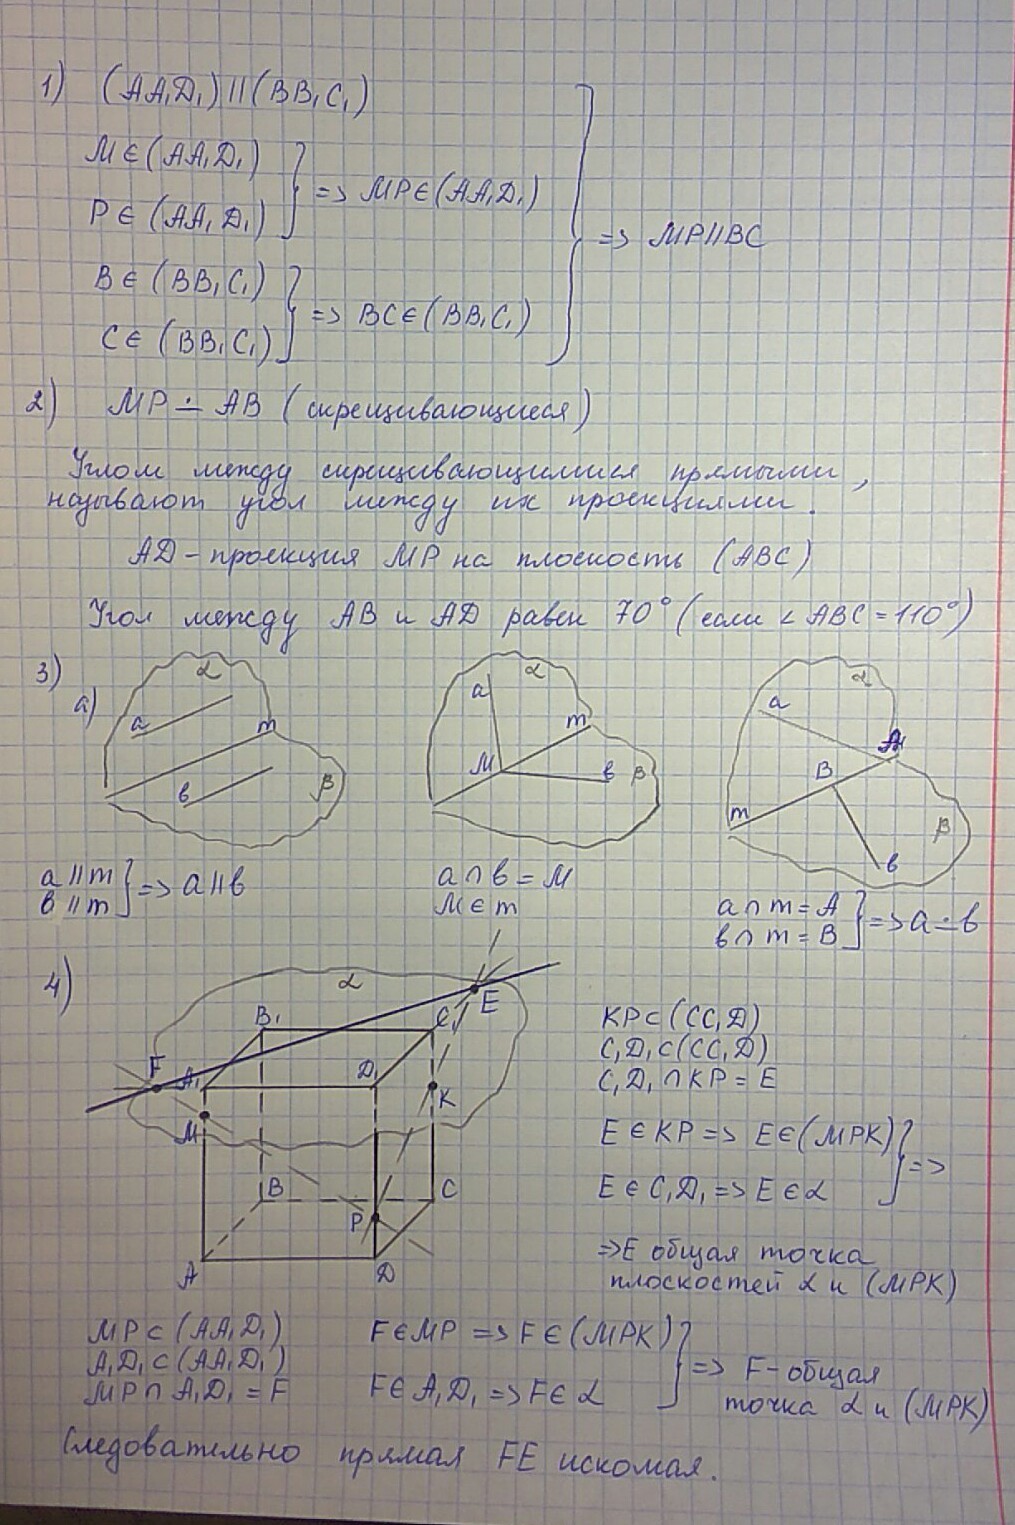 1) (AA₁D₁) || (BB₁C₁)
M ∈ (AA₁D₁)
P ∈ (AA₁D₁)
} => MP ∈ (AA₁D₁)
B ∈ (BB₁C₁)
C ∈ (BB₁C₁)
} => BC ∈ (BB₁C₁)
} => MP || BC
2) MP ∸ AB (скрещивающиеся)
Углом между скрещивающимися прямыми,
называют угол между их проекциями.
AD - проекция MP на плоскость (ABC)
Угол между AB и AD равен 70° (если ∠ ABC = 110°)
3)
a)
α
a
m
β
в
α
a
m
M
в
β
α
a
A
B
m
β
в
a || m
в || m
} => a || в
a ∩ в = M
M ∈ m
a ∩ m = A
в ∩ m = B
} => a ∸ в
4)
α
E
B₁
C₁
F
A₁
D₁
K
M
B
C
P
A
D
KP ⊂ (CC₁D)
C₁D₁ ⊂ (CC₁D)
C₁D₁ ∩ KP = E
E ∈ KP => E ∈ (MPK)
E ∈ C₁D₁ => E ∈ α
} =>
=> E общая точка
плоскостей α и (MPK)
MP ⊂ (AA₁D₁)
A₁D₁ ⊂ (AA₁D₁)
MP ∩ A₁D₁ = F
F ∈ MP => F ∈ (MPK)
F ∈ A₁D₁ => F ∈ α
} => F - общая
точка α и (MPK)
Следовательно прямая FE искомая.